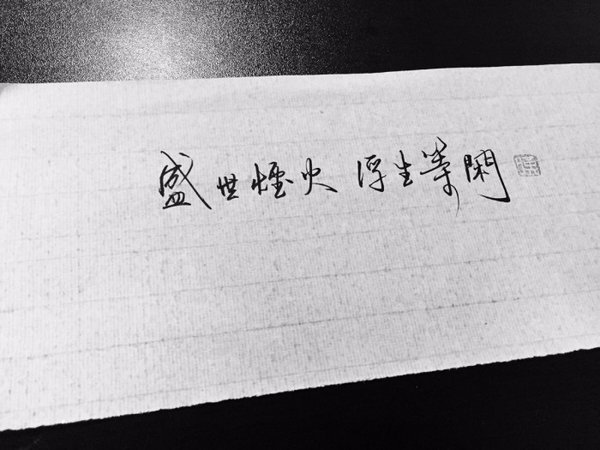 盛世煙火 浮生等閑